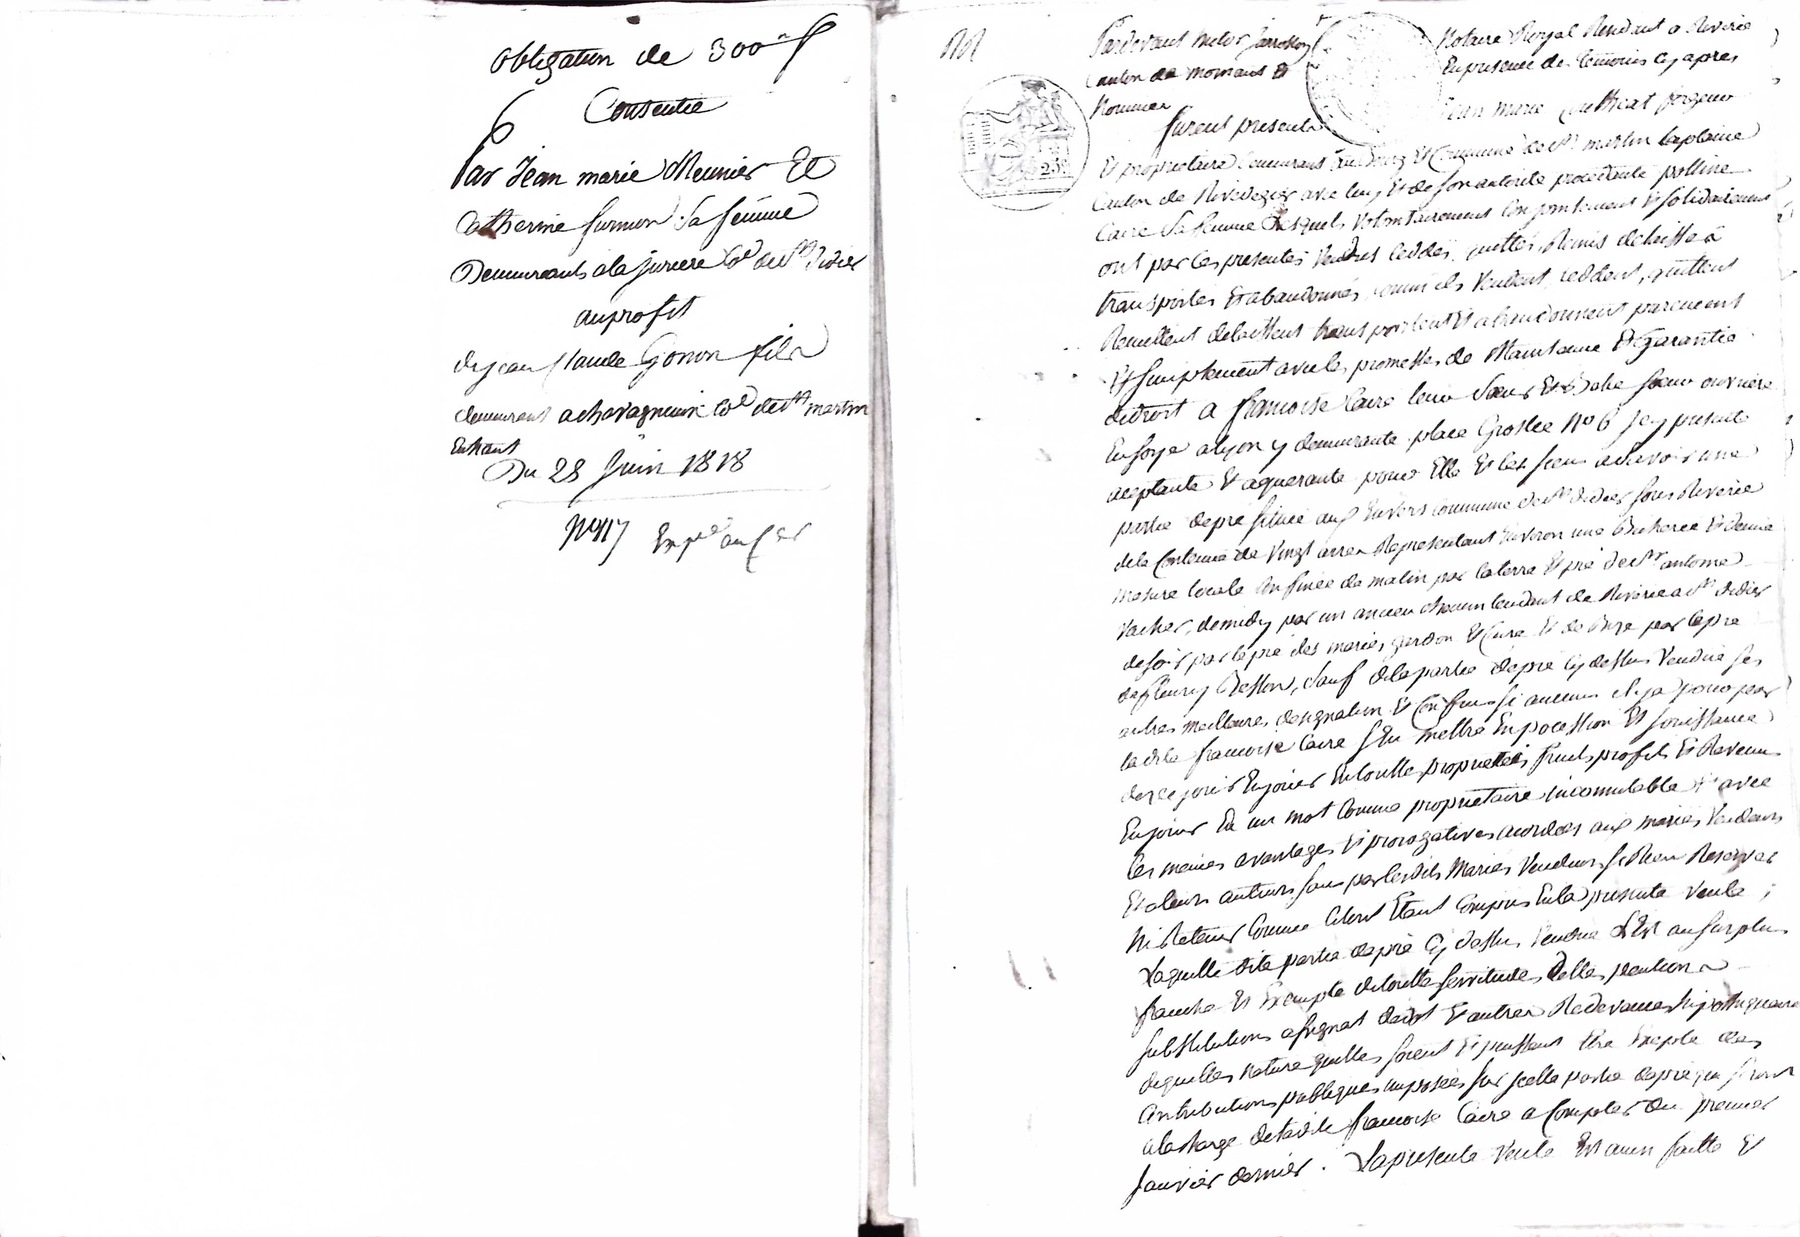 obligation de 300 f
Consentie
Par Jean marie Meunier Et
Catherine furnion Sa femme
Demeurants a la juriere Cne de st Didier
au profit
de jean Claude Gonon fils
demeurant a chavagneux Cne de st martin
En haut
Du 28 Juin 1818
No 417
Pardevant Notaire Royal Residant a Riverie
Canton de mornant Et En presence des temoins cy apres
Nommes
furent presents Jean Marie
Et proprietaire demeurant au Bourg Et Commune de st martin la plaine
Canton de Rivedegier avec luy Et de son autorité procedante
Caire Sa femme Lesquels Volontairement Conjointement Et Solidairement
ont par Ces presentes Vendus Ceddés, quittés, Remis delaissé
transportés Et abandonnés, comme ils Vendent, ceddent, quittent
Remettent delaissent transportent Et abandonnent purement
Et simplement avec les promesses de Maintenue Et Garantie
de droit a françoise Caire leur Sœur Et Belle sœur ouvriere
En soye a lyon y demeurante place Grollée No 6 Icy presente
aceptante Et aquerante pour Elle Et les siens a Savoir une
partie de pré située aux Envers commune de st Didier sous Riverie
de la Contenue de Vingt ares Representant Environ une Bicherée Et demie
mesure locale Confinée de matin par la terre Et pré de sr antoine
Vacher, de midy par un ancien chemin tendant de Riverie a st Didier
de soir par le pré des mariés Et Caire Et de Bize par le pré
de fleury Besson, Sauf de la partie de pré cy dessus Vendue ses
autres meilleures designation Et Confins si aucuns il y a pour par
la dite françoise Caire s'En mettre En possession Et Jouissance
de ce jour Enjouir En toutte proprietté, fruits profits Et Revenus
Enjouir En un mot Comme proprietaire incomutable Et avec
les memes avantages Et prerogatives acordées aux mariés Vendeurs
Et a leurs auteurs sans par lesdits Mariés Vendeurs se Rien Reserver
Ni Retenir Comme le tout Etant Compris En la presente Vente ;
Laquelle dite partie de pré Cy dessus Vendue Est au surplus
franche Et Exempte de toutte servitudes, dettes, pentions
substitutions de dot Et autres Redevances hipothequaires
de quelles nature quelles soient Et puissent Etre Exepté des
Contributions publiques imposées sur icelle partie de pré qui seront
a la charge de ladite françoise Caire a Compter du premier
Janvier dernier. La presente Vente Est ainsi faitte Et